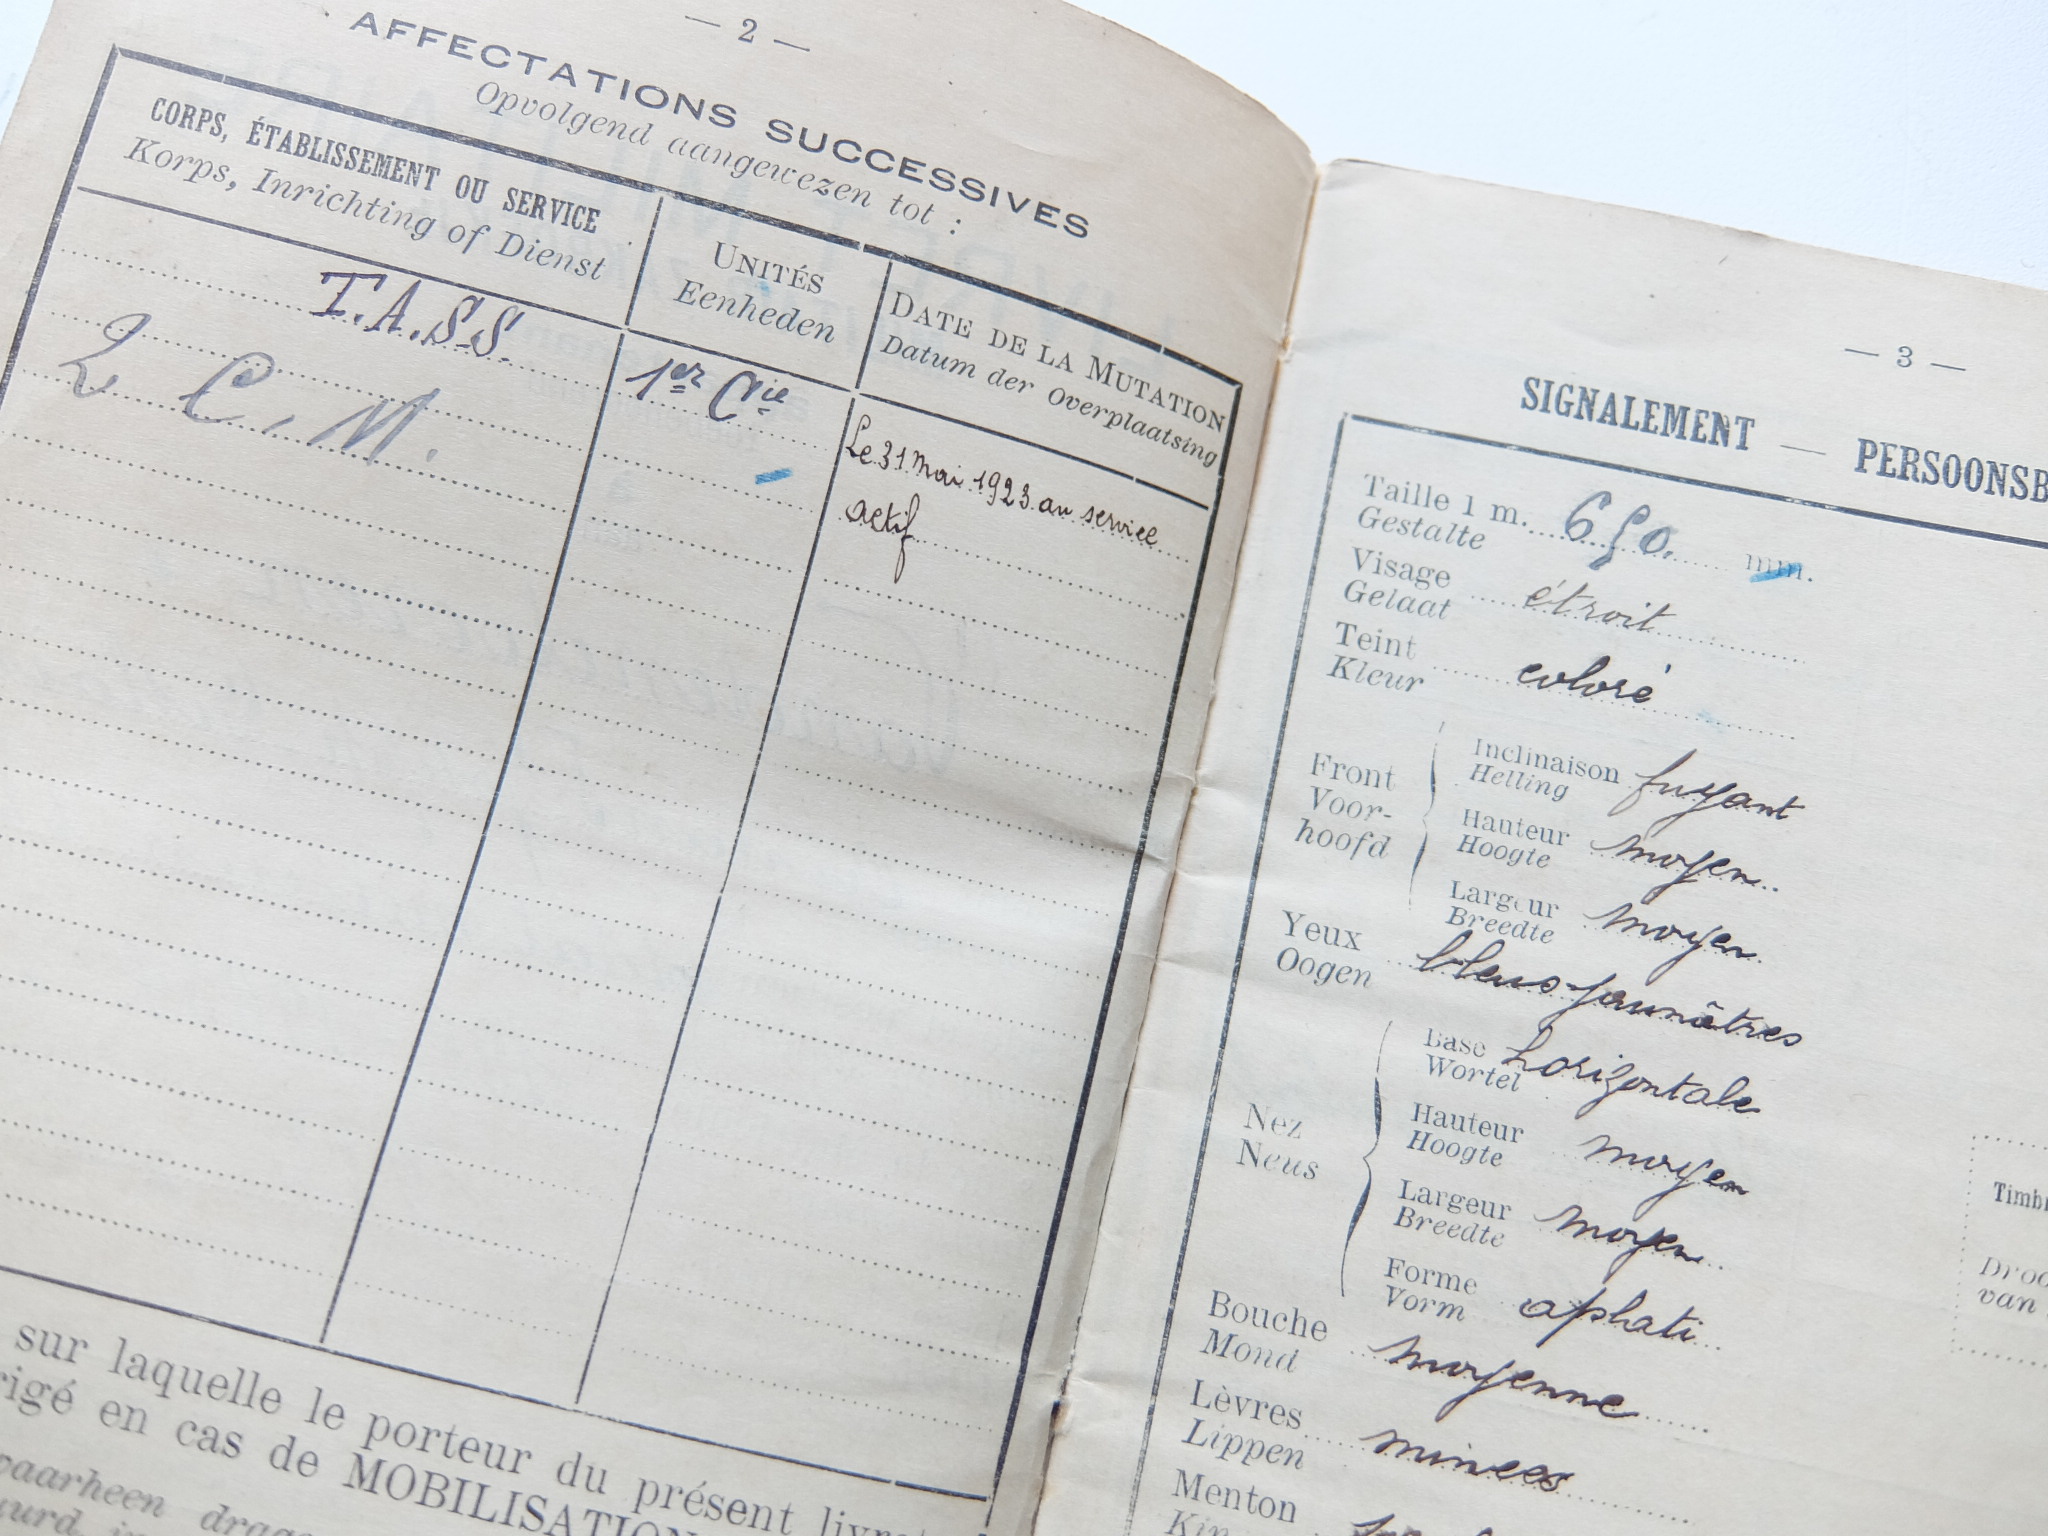 — 2 —
AFFECTATIONS SUCCESSIVES
Opvolgend aangewezen tot :
CORPS, ÉTABLISSEMENT OU SERVICE
Korps, Inrichting of Dienst
UNITÉS
Eenheden
DATE DE LA MUTATION
Datum der Overplaatsing
T.A.S.S.
1er Cie
Le 31 Mai 1923 au service
actif
C. M.
sur laquelle le porteur du présent livret
rigé en cas de MOBILISATION
waarheen
— 3 —
SIGNALEMENT — PERSOONSB
Taille 1 m. 650. mm.
Gestalte
Visage étroit
Gelaat
Teint coloré
Kleur
Front
Voor-
hoofd
Inclinaison fuyant
Helling
Hauteur moyen
Hoogte
Largeur moyen
Breedte
Yeux bleus-jaunâtres
Oogen
Nez
Neus
Base horizontale
Wortel
Hauteur moyen
Hoogte
Largeur moyen
Breedte
Forme aplati
Vorm
Bouche moyenne
Mond
Lèvres minces
Lippen
Menton
Kin
Timb
Droo
van